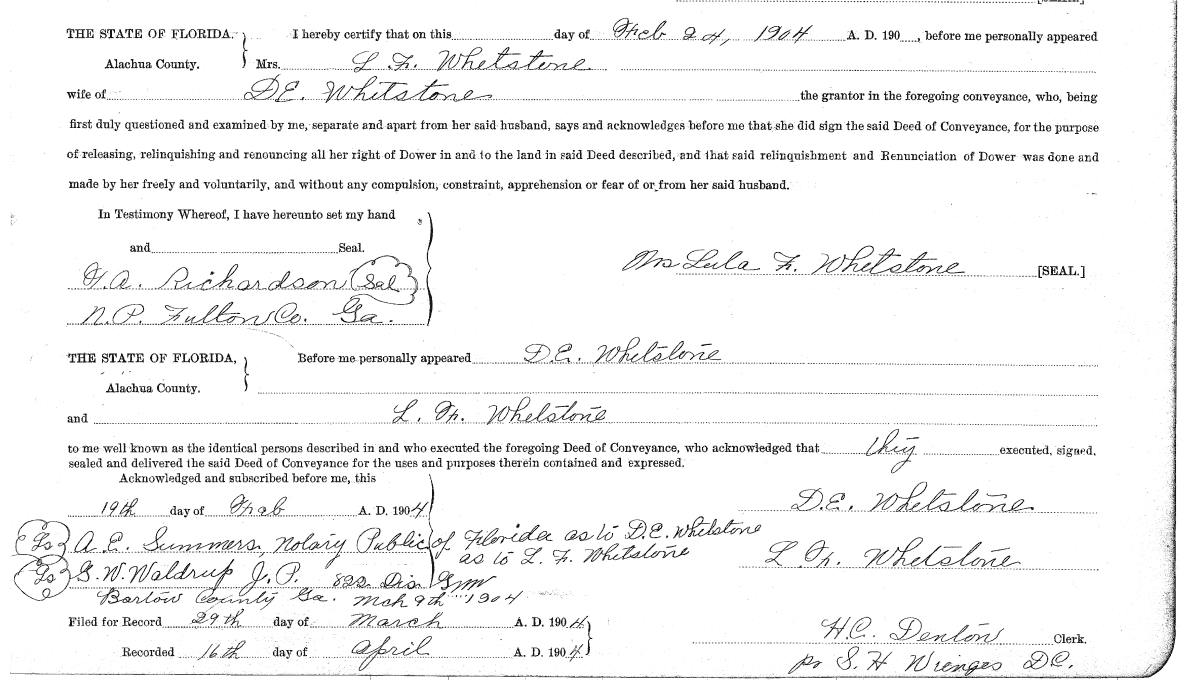 THE STATE OF FLORIDA, I hereby certify that on this day of Feb 24, 1904 A. D. 190 , before me personally appeared
Alachua County. Mrs. L F. Whetstone
wife of D.E. Whitstone the grantor in the foregoing conveyance, who, being
first duly questioned and examined by me, separate and apart from her said husband, says and acknowledges before me that she did sign the said Deed of Conveyance, for the purpose
of releasing, relinquishing and renouncing all her right of Dower in and to the land in said Deed described, and that said relinquishment and Renunciation of Dower was done and
made by her freely and voluntarily, and without any compulsion, constraint, apprehension or fear of or from her said husband.
In Testimony Whereof, I have hereunto set my hand
and Seal.
Mrs Lula F. Whetstone [SEAL.]
Richardson (Seal
N.P. Fulton Co. Ga.
THE STATE OF FLORIDA, Before me personally appeared D.E. Whetstone
Alachua County.
and L. F. Whetstone
to me well known as the identical persons described in and who executed the foregoing Deed of Conveyance, who acknowledged that they executed, signed,
sealed and delivered the said Deed of Conveyance for the uses and purposes therein contained and expressed.
Acknowledged and subscribed before me, this
19th day of Feb A. D. 1904
D.E. Whetstone
Ls A. E. Summers, Notary Public of Florida as to D.E. Whetstone
as to L. F. Whetstone
L. F. Whetstone
Ls G. W. Waldrup J. P. 822 Dis GM
Bartow County Ga. Mch 9th 1904
Filed for Record 29th day of March A. D. 1904
H.C. Denton Clerk.
Recorded 16th day of April A. D. 1904
pr S. H Wienges D.C.